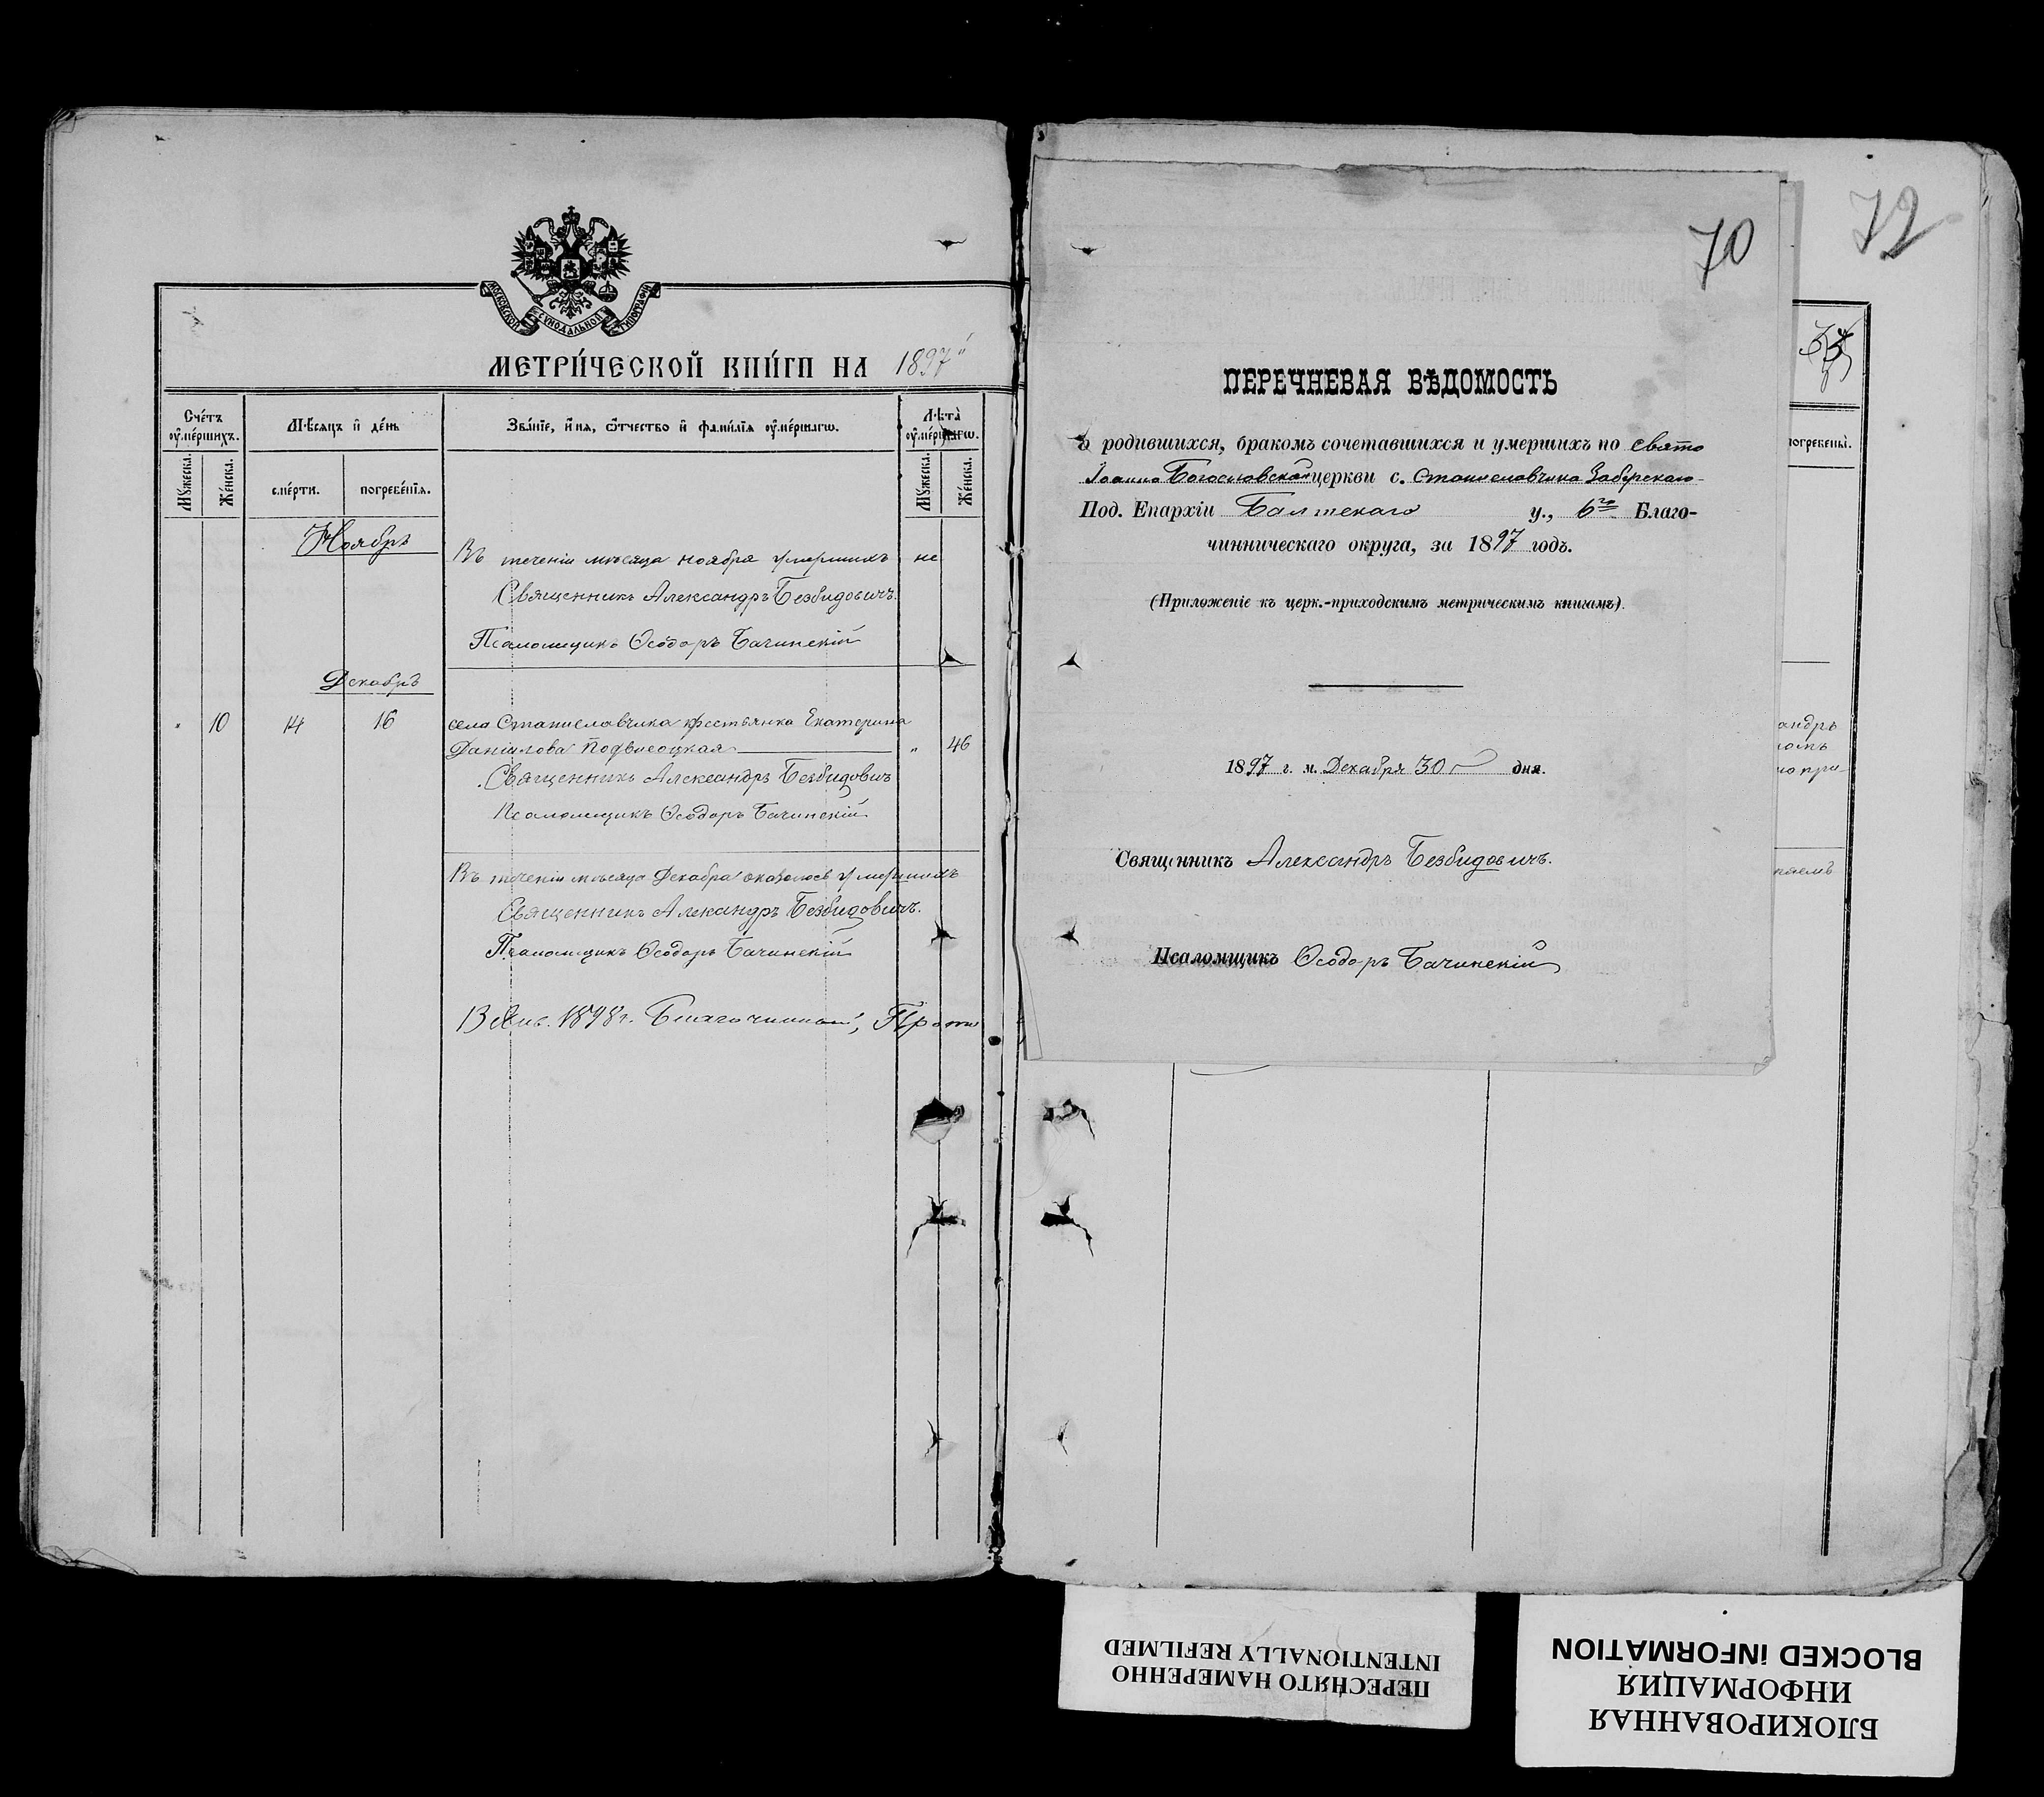 МОСКОВСКОЙ СѴНОДАЛЬНОЙ ТИПОГРАФІИ
МЕТРИ́ЧЕСКОЙ КНИ́ГИ НА 1897
Сче́тъ оу҆ме́ршихъ.
Мѣ́сяцъ и҆ де́нь
Зва́нїе, и҆́мя, ѻ҆́тчество и҆ фами́лїя оу҆ме́ршагѡ.
Лѣ́та оу҆ме́ршагѡ.
Мꙋ́жеска.
Же́нска.
сме́рти.
погребе́нїя.
Мꙋ́жеска.
Же́нска.
Ноябрь
Въ теченіи мѣсяца ноября умершихъ не
Священникъ Александръ Безбидовичъ.
Псаломщикъ Ѳеодоръ Бачинскій
Декабрь
" 10 14 16 села Станиславчика крестьянка Екатерина
Даніилова Подвысоцкая " 46
Священникъ Александръ Безбидович
Псаломщикъ Ѳеодоръ Бачинскій
Въ теченіи мѣсяца Декабря оказалось умершихъ
Священникъ Александръ Безбидовичъ.
Псаломщикъ Ѳеодоръ Бачинскій
13 Янв. 1898 г. Благочинный, Прото
70
72
ПЕРЕЧНЕВАЯ ВѢДОМОСТЬ
о родившихся, бракомъ сочетавшихся и умершихъ по свято
Іоанно Богословской церкви с. Станиславчика Заберскаго
Под. Епархіи Балтскаго у., 6го Благо-
чинническаго округа, за 1897 годъ.
(Приложеніе къ церк.-приходскимъ метрическимъ книгамъ).
1897 г. м. Декабря 30 дня.
Священникъ Александръ Безбидовичъ.
Псаломщикъ Ѳеодоръ Бачинскій
погребены̀.
андръ
но при-
ПЕРЕСНЯТО НАМЕРЕННО
INTENTIONALLY REFILMED
БЛОКИРОВАННАЯ
ИНФОРМАЦИЯ
BLOCKED INFORMATION